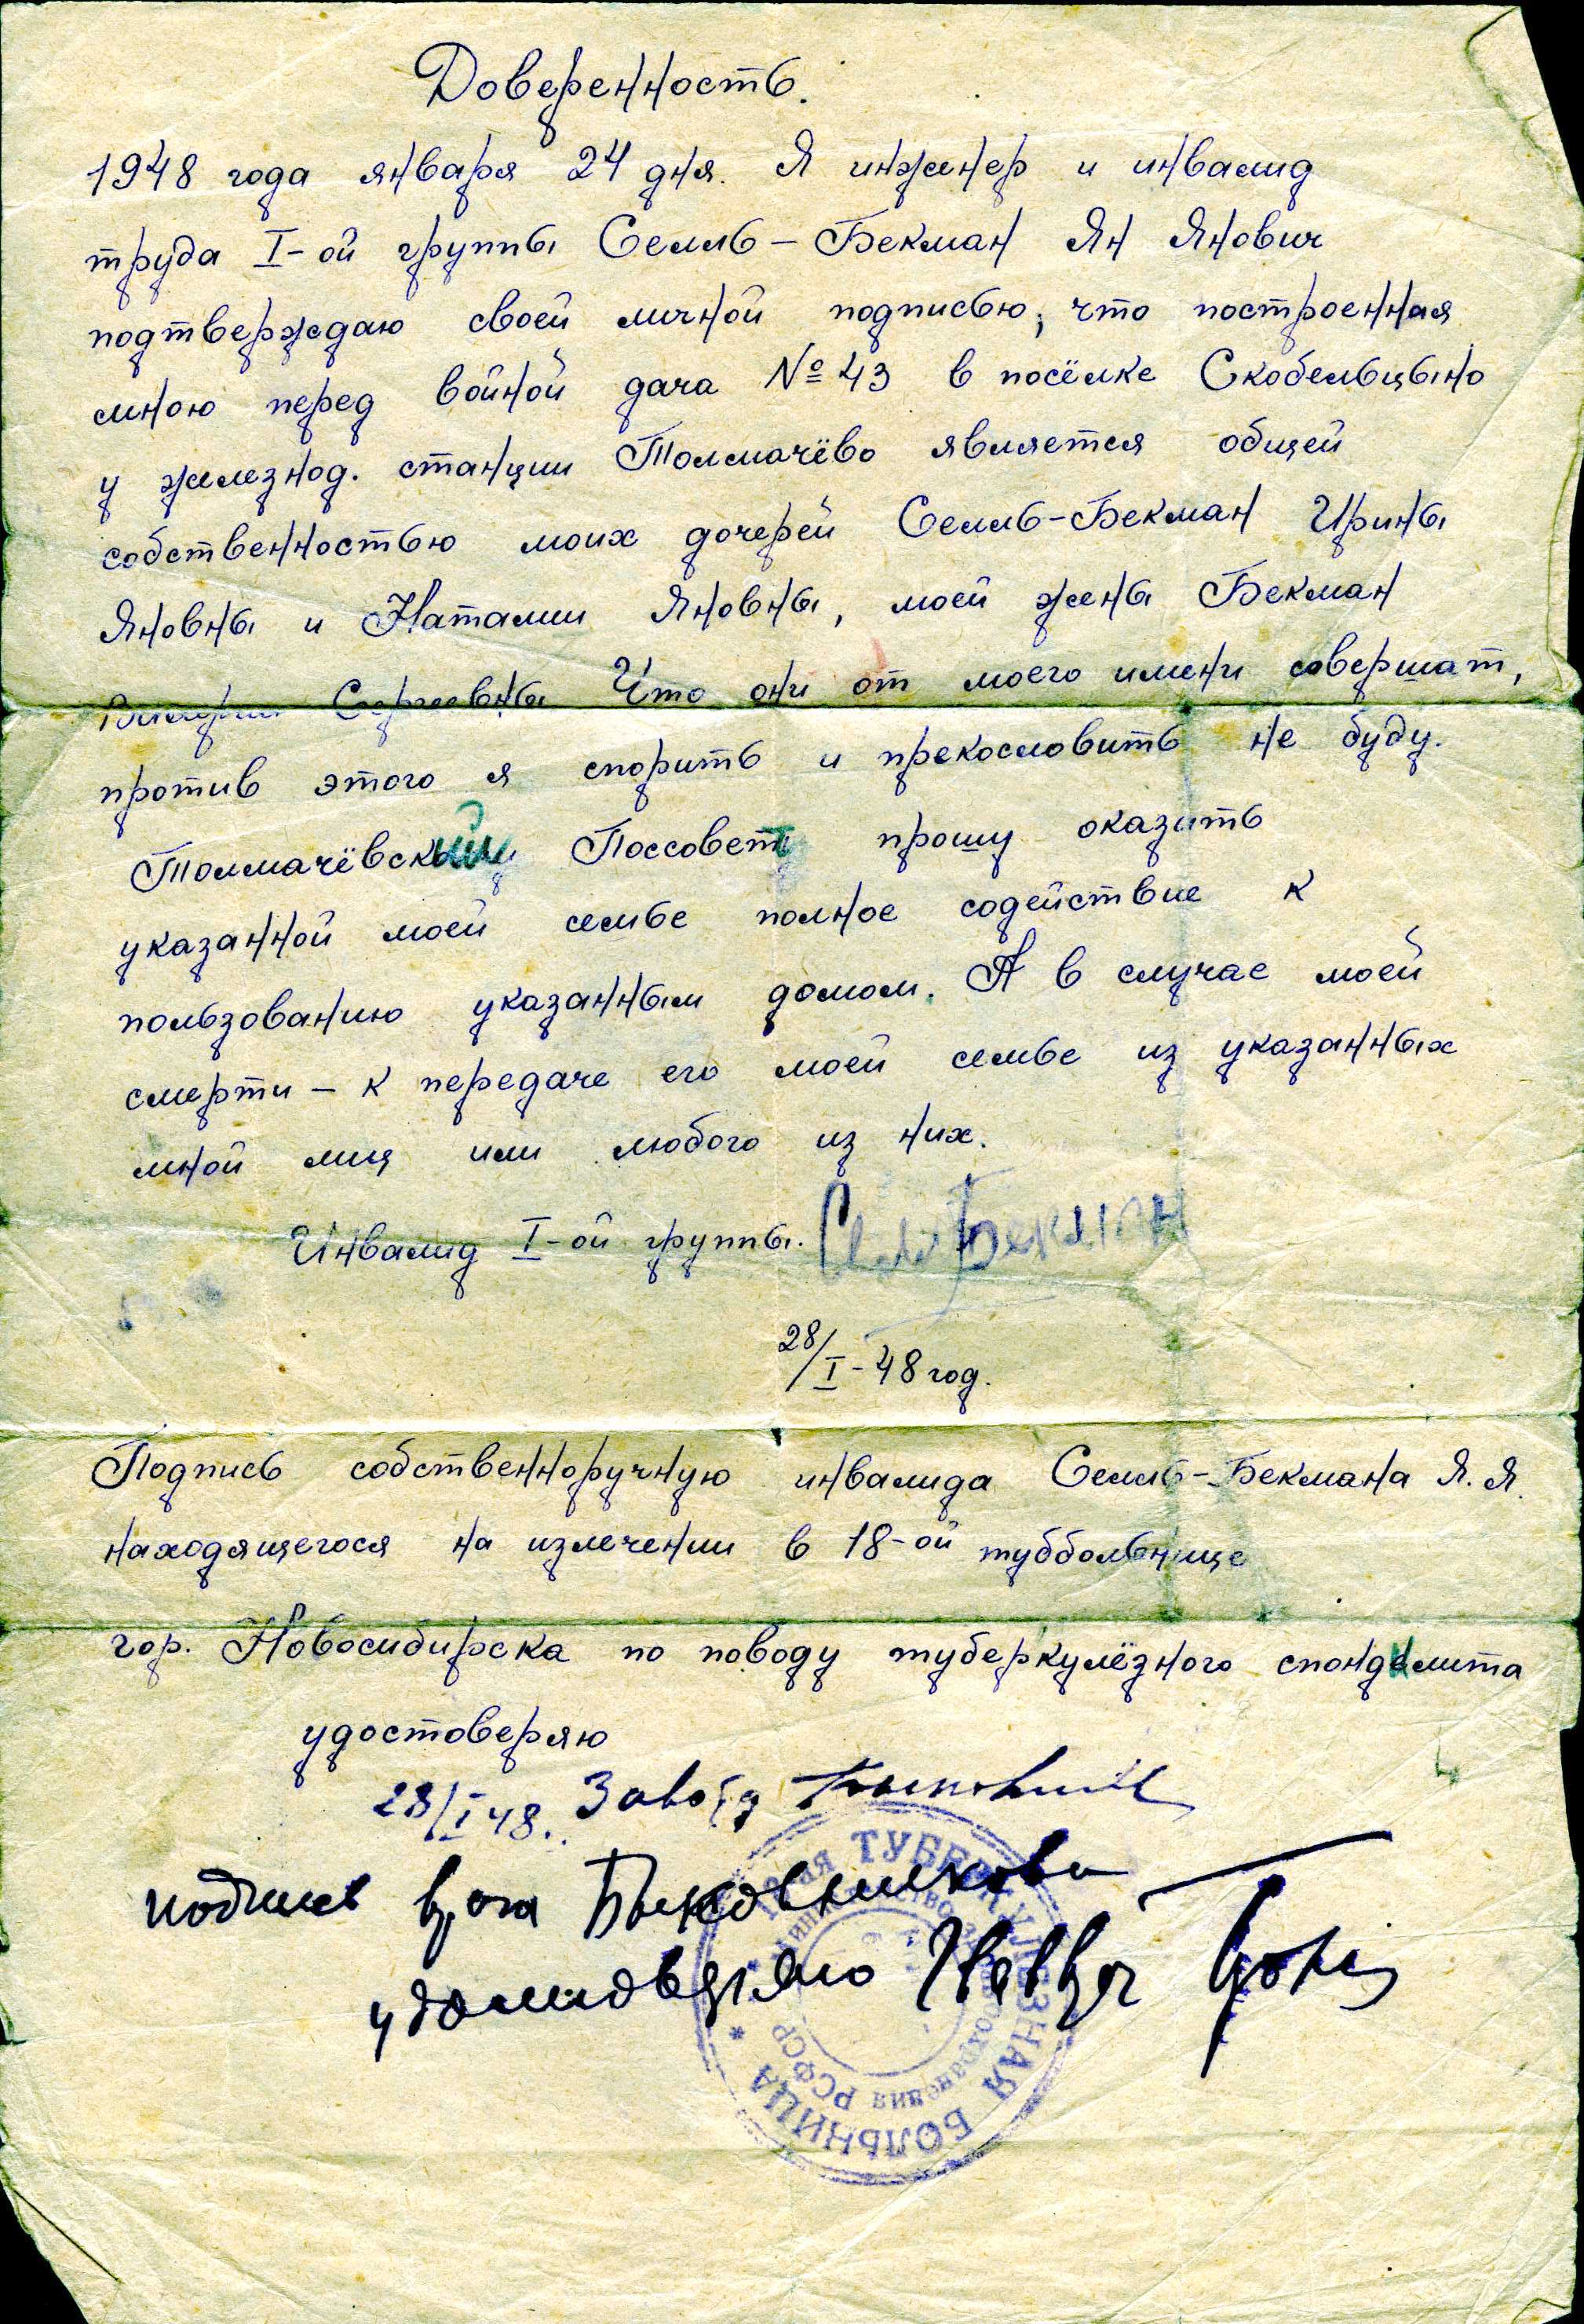 Доверенность.
1948 года января 24 дня. Я инженер и инвалид
труда I-ой группы Селль-Бекман Ян Янович
подтверждаю своей личной подписью, что построенная
мною перед войной дача № 43 в посёлке Скобельцыно
у железнод. станции Толмачёво является общей
собственностью моих дочерей Селль-Бекман Ирины
Яновны и Наталии Яновны, моей жены Бекман
Валерии Сергеевны Что они от моего имени совершат,
против этого я спорить и прекословить не буду.
Толмачёвский Поссовет прошу оказать
указанной моей семье полное содействие к
пользованию указанным домом. А в случае моей
смерти - к передаче его моей семье из указанных
мной лиц или любого из них.
Инвалид I-ой группы. Селль Бекман
28/I-48 год.
Подпись собственноручную инвалида Селль-Бекмана Я.Я.
находящегося на излечении в 18-ой туббольнице
гор. Новосибирска по поводу туберкулёзного спондилита
удостоверяю
28/I 48.
подпись врача Быковниковой
удостоверяю
ТУБЕРКУЛЕЗНАЯ БОЛЬНИЦА
Министерство здравоохранения РСФСР